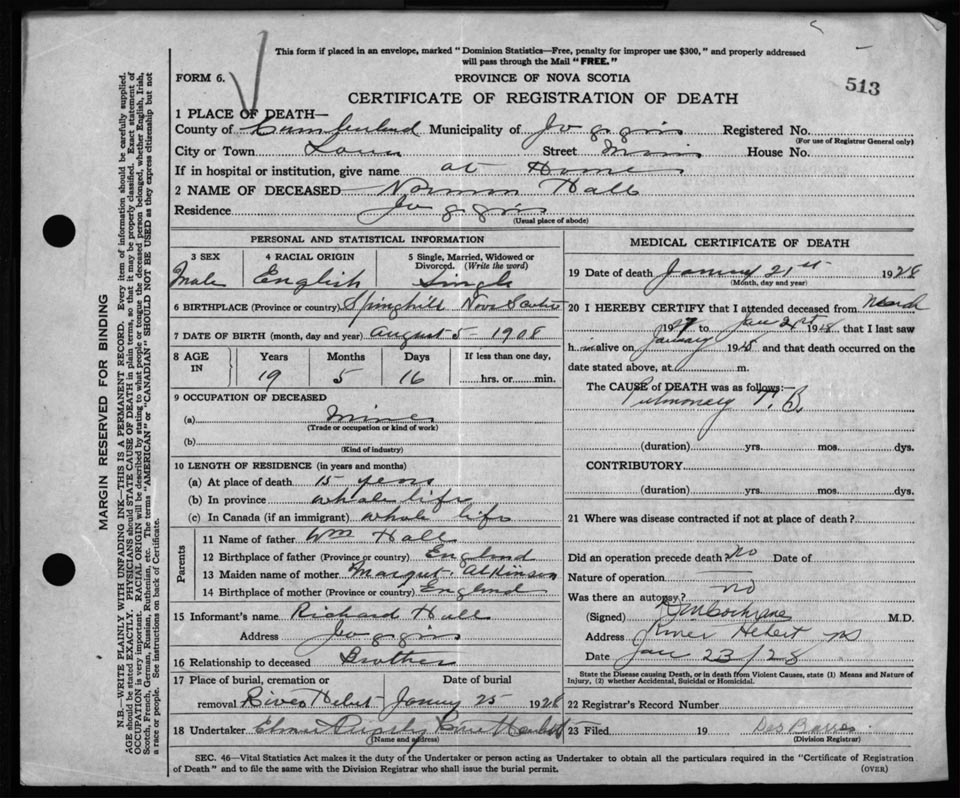 This form if placed in an envelope, marked "Dominion Statistics—Free, penalty for improper use $300," and properly addressed
will pass through the Mail "FREE."
FORM 6.
PROVINCE OF NOVA SCOTIA
513
CERTIFICATE OF REGISTRATION OF DEATH
1 PLACE OF DEATH—
County of Cumberland Municipality of Joggins Registered No.
(For use of Registrar General only)
City or Town Street Main House No.
If in hospital or institution, give name at Home
2 NAME OF DECEASED Norman Hall
Residence Joggins
(Usual place of abode)
PERSONAL AND STATISTICAL INFORMATION
3 SEX 4 RACIAL ORIGIN 5 Single, Married, Widowed or Divorced. (Write the word)
Male English Single
6 BIRTHPLACE (Province or country) Springhill Nova Scotia
7 DATE OF BIRTH (month, day and year) August 5 1908
8 AGE IN Years Months Days If less than one day,
19 5 16 hrs. or min.
9 OCCUPATION OF DECEASED
(a) Miner
(Trade or occupation or kind of work)
(b)
(Kind of industry)
10 LENGTH OF RESIDENCE (in years and months)
(a) At place of death 15 years
(b) In province whole life
(c) In Canada (if an immigrant) whole life
Parents
11 Name of father Wm Hall
12 Birthplace of father (Province or country) England
13 Maiden name of mother Atkinson
14 Birthplace of mother (Province or country) England
15 Informant's name Richard Hall
Address Joggins
16 Relationship to deceased Brother
17 Place of burial, cremation or removal Date of burial
River Hebert 25 1928
18 Undertaker
(Name and address)
MEDICAL CERTIFICATE OF DEATH
19 Date of death January 21st 1928
(Month, day and year)
20 I HEREBY CERTIFY that I attended deceased from March
1927 to Jan 21st 1928, that I last saw
h im alive on January 1928 and that death occurred on the
date stated above, at m.
The CAUSE of DEATH was as follows:—
Pulmonary T. B.
(duration) yrs. mos. dys.
CONTRIBUTORY
(duration) yrs. mos. dys.
21 Where was disease contracted if not at place of death?
Did an operation precede death? no Date of
Nature of operation
Was there an autopsy? no
(Signed) Cochrane M.D.
Address River Hebert NS
Date Jan 23/28
State the Disease causing Death, or in death from Violent Causes, state (1) Means and Nature of
Injury, (2) whether Accidental, Suicidal or Homicidal.
22 Registrar's Record Number
23 Filed 19 Des Barres
(Division Registrar)
SEC. 46—Vital Statistics Act makes it the duty of the Undertaker or person acting as Undertaker to obtain all the particulars required in the "Certificate of Registration
of Death" and to file the same with the Division Registrar who shall issue the burial permit. (OVER)
MARGIN RESERVED FOR BINDING
N.B.—WRITE PLAINLY WITH UNFADING INK—THIS IS A PERMANENT RECORD. Every item of information should be carefully supplied.
AGE should be stated EXACTLY. PHYSICIANS should STATE CAUSE OF DEATH in plain terms, so that it may be properly classified. Exact statement of
OCCUPATION is very important. RACIAL ORIGIN will be described by stating to what people or tongue the deceased person belonged, whether English, Irish,
Scotch, French, German, Russian, Ruthenian, etc. The terms "AMERICAN" or "CANADIAN" SHOULD NOT BE USED as they express citizenship but not
a race or people. See instructions on back of Certificate.